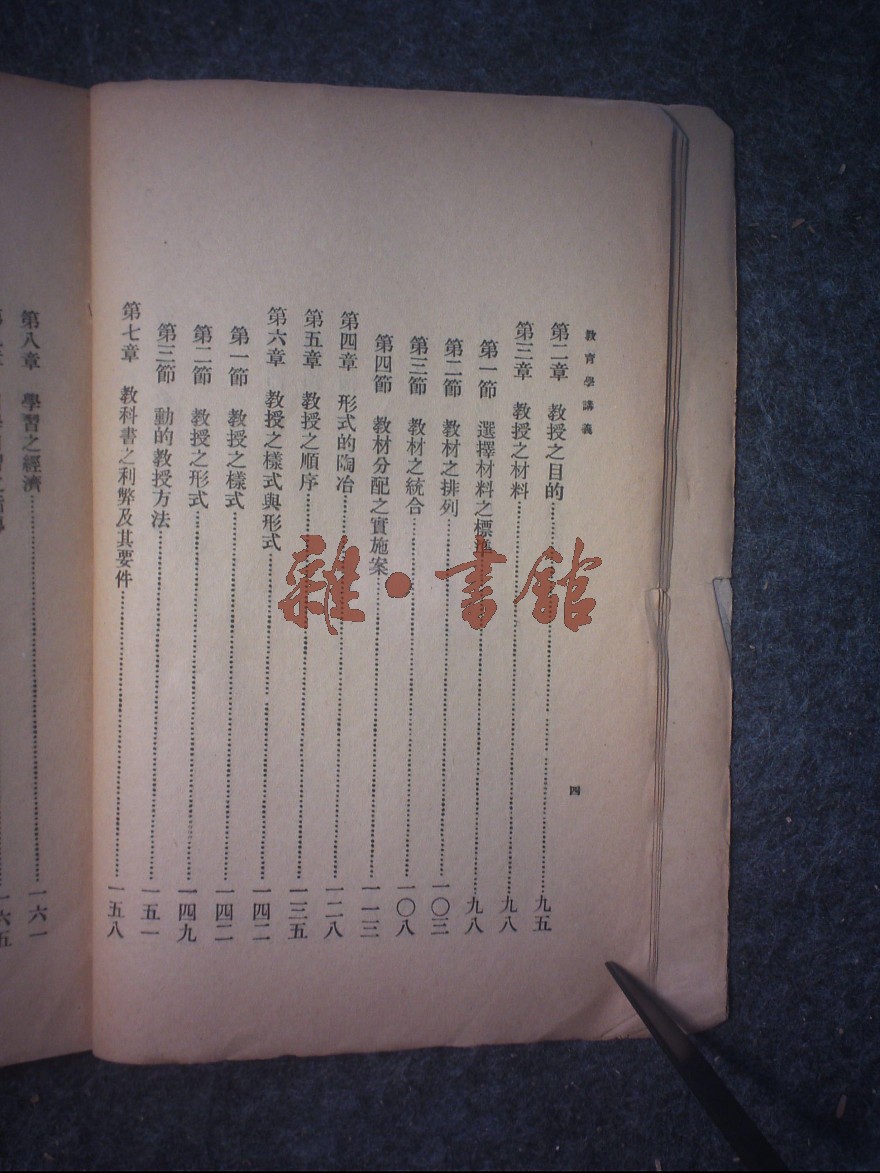 教育學講義
四
第二章 教授之目的……九五
第三章 教授之材料……九八
第一節 選擇材料之標準……九八
第二節 教材之排列……一〇三
第三節 教材之統合……一〇八
第四節 教材分配之實施案……一一三
第四章 形式的陶冶……一二八
第五章 教授之順序……一三五
第六章 教授之樣式與形式……一四二
第一節 教授之樣式……一四二
第二節 教授之形式……一四九
第三節 動的教授方法……一五一
第七章 教科書之利弊及其要件……一五八
第八章 學習之經濟……一六一
一六五
雜·書館